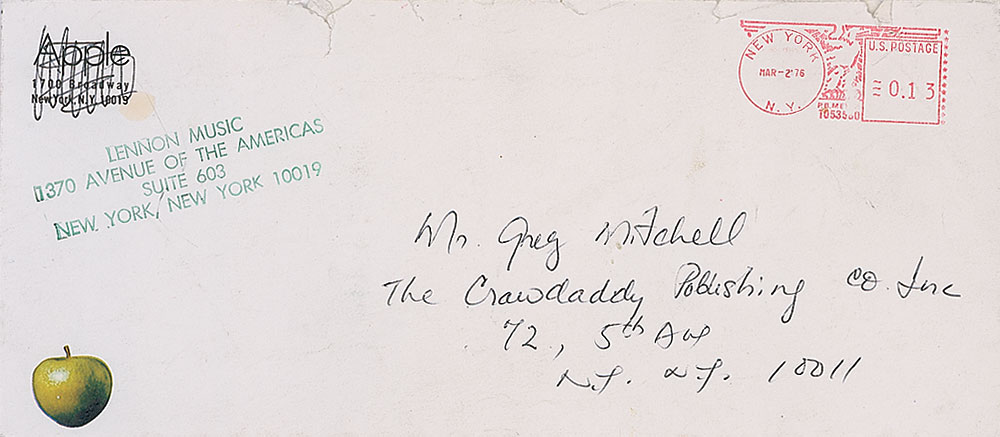 Apple
1700 Broadway
New York, N.Y. 10019
LENNON MUSIC
1370 AVENUE OF THE AMERICAS
SUITE 603
NEW YORK, NEW YORK 10019
NEW YORK
MAR -2'76
N.Y.
U.S. POSTAGE
0.13
P.B. ME
Mr. Greg Mitchell
The Crawdaddy Publishing Co. Inc
72, 5th Ave
N.Y. N.Y. 10011